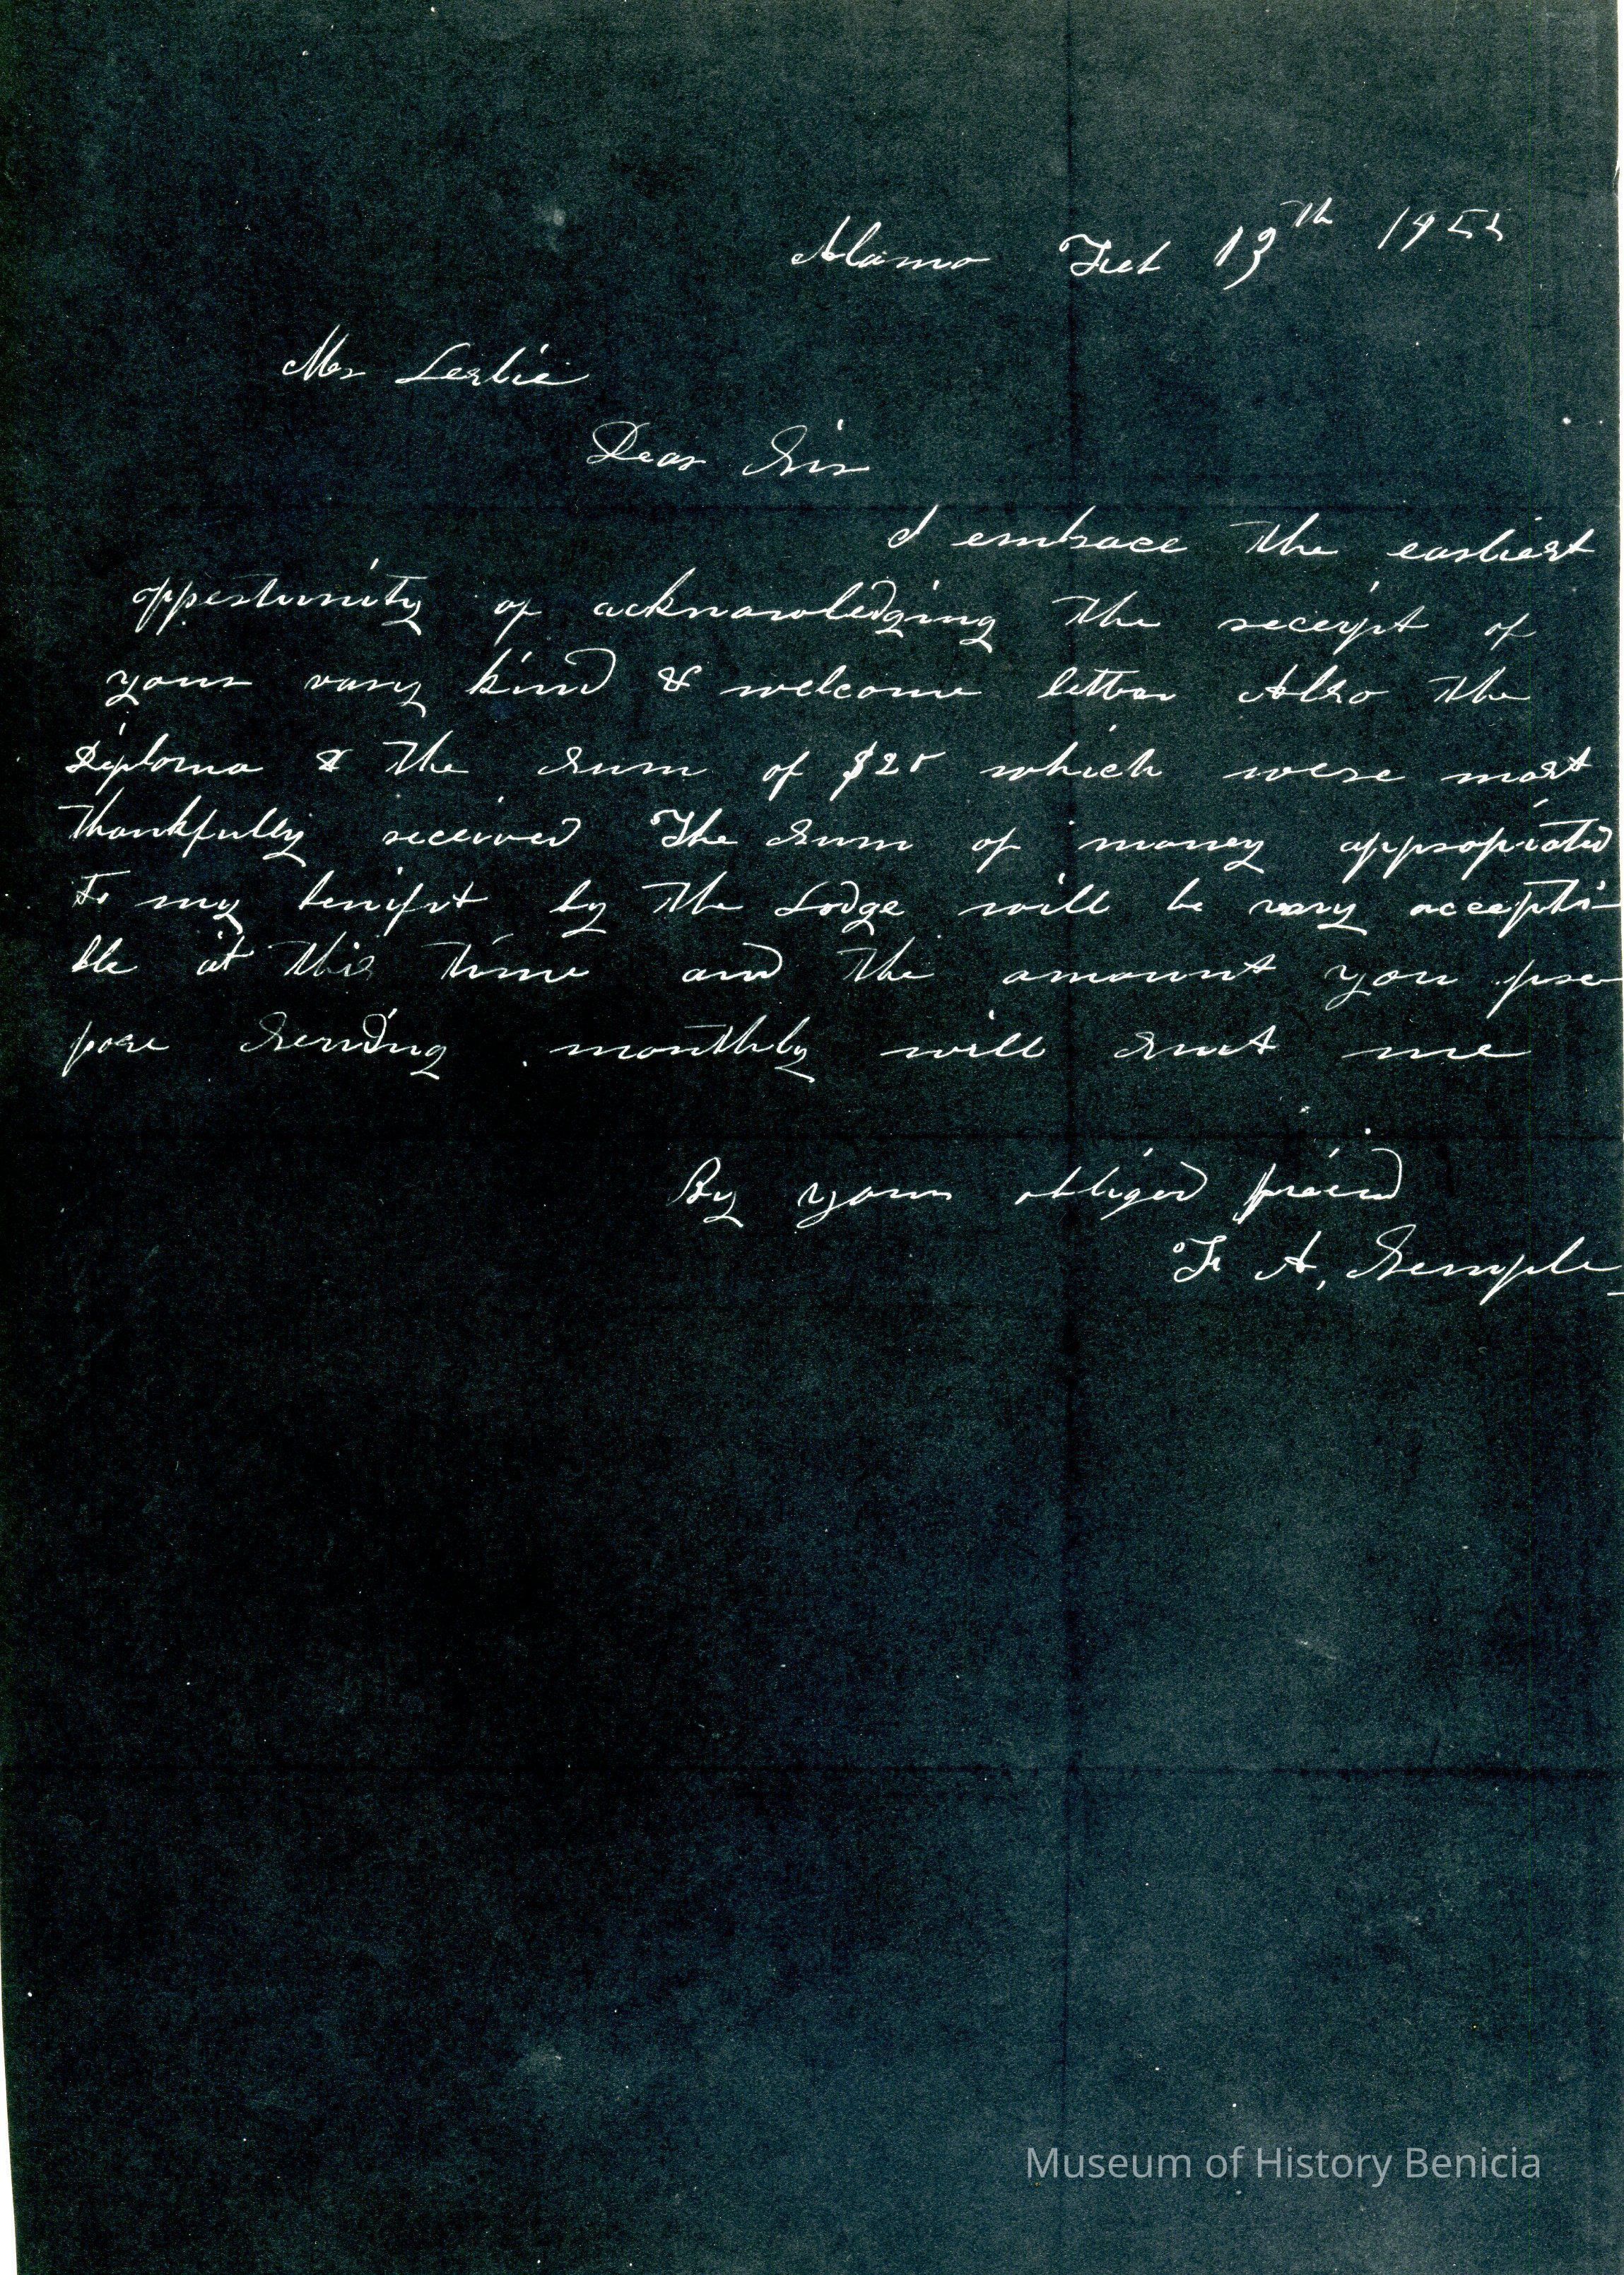 Alamo Feb 13th 1855
Mr Leslie
Dear Sir
I embrace the earliest
oppertunity of acknowledging the receipt of
your vary kind & welcome letter Also the
Diploma & the sum of $25 which were most
thankfully received The sum of money appropiated
to my benifit by the Lodge will be vary accepti-
ble at this time and the amount you pro
pose sending monthly will suit me
By your obliged freind
F A, Semple
Museum of History Benicia